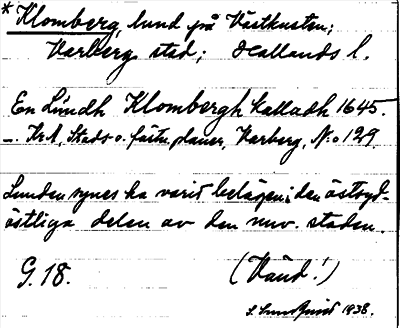 * Klomberg, lund på Västkusten;
Varberg stad; Hallands l.
En Lundh Klombergh kalladh 1645.
– Kr.A, Stads o. fästn.planer, Varberg, No 129
Lunden synes ha varit belägen i den östsyd-
östliga delen av den nuv. staden.
G. 18. (Vänd!)
S. Lundquist 1938.